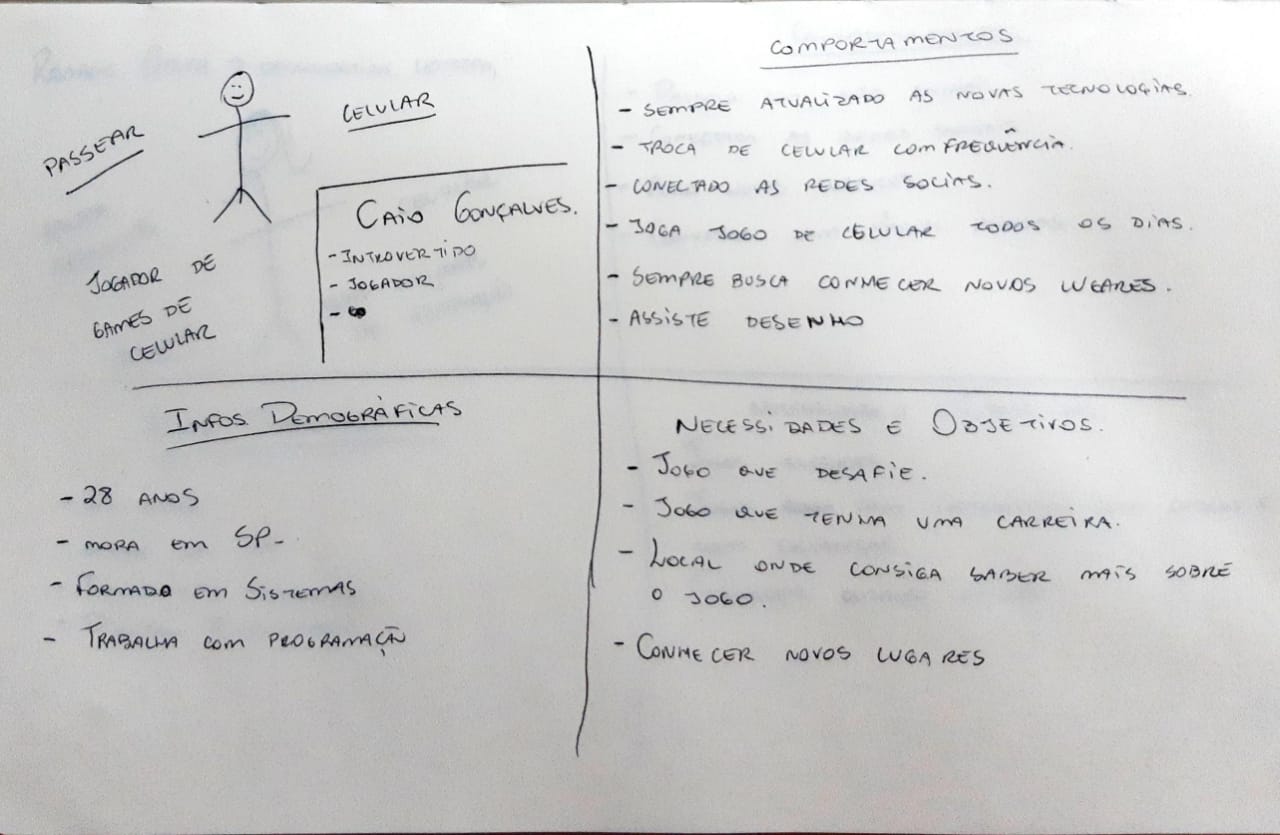 PASSEAR
CELULAR
JOGADOR DE
GAMES DE
CELULAR
CAIO GONÇALVES.
- INTROVERTIDO
- JOGADOR
-
COMPORTAMENTOS
- SEMPRE ATUALIZADO AS NOVAS TECNOLOGIAS.
- TROCA DE CELULAR COM FREQUÊNCIA.
- CONECTADO AS REDES SOCIAS.
- JOGA JOGO DE CELULAR TODOS OS DIAS.
- SEMPRE BUSCA CONHECER NOVOS LUGARES.
- ASSISTE DESENHO
INFOS DEMOGRÁFICAS
- 28 ANOS
- MORA EM SP-
- FORMADO EM SISTEMAS
- TRABALHA COM PROGRAMAÇÃO
NECESSIDADES E OBJETIVOS.
- JOGO QUE DESAFIE.
- JOGO QUE TENHA UMA CARREIRA.
- LOCAL ONDE CONSIGA SABER MAIS SOBRE
O JOGO.
- CONHECER NOVOS LUGARES